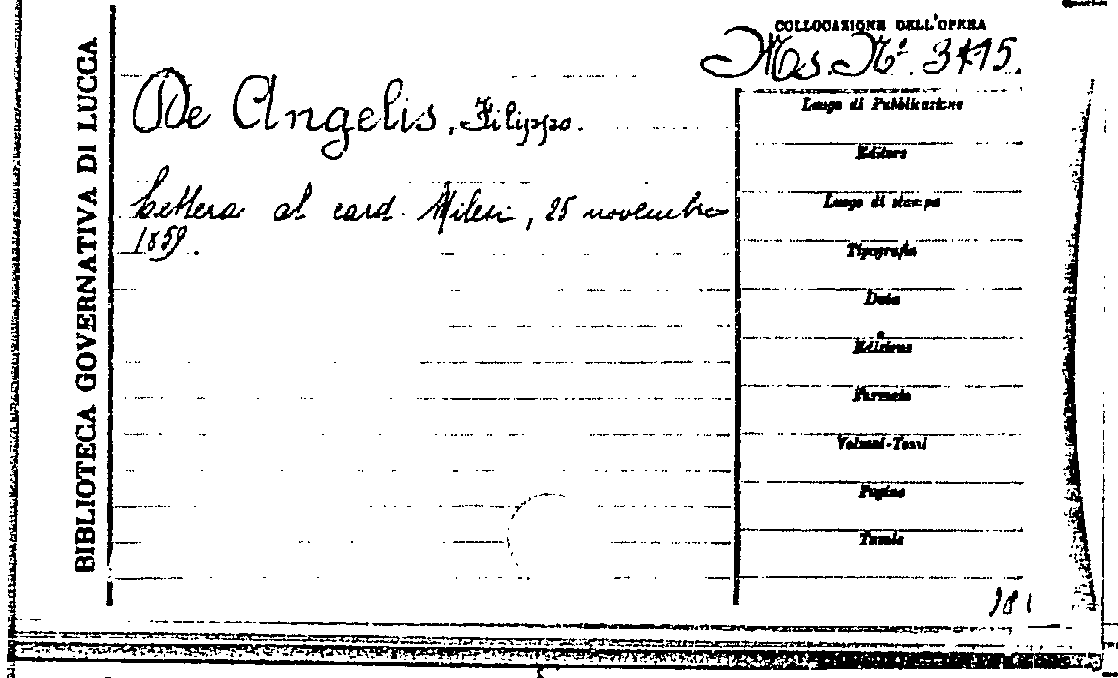 BIBLIOTECA GOVERNATIVA DI LUCCA
COLLOCAZIONE DELL'OPERA
Ms. N.º
De Angelis, Filippo.
Lettera al card. Milesi, 25 novembre
1859.
Luogo di Pubblicazione
Editore
Luogo di stampa
Tipografia
Data
Edizione
Formato
Volumi-Tomi
Pagine
Tavole